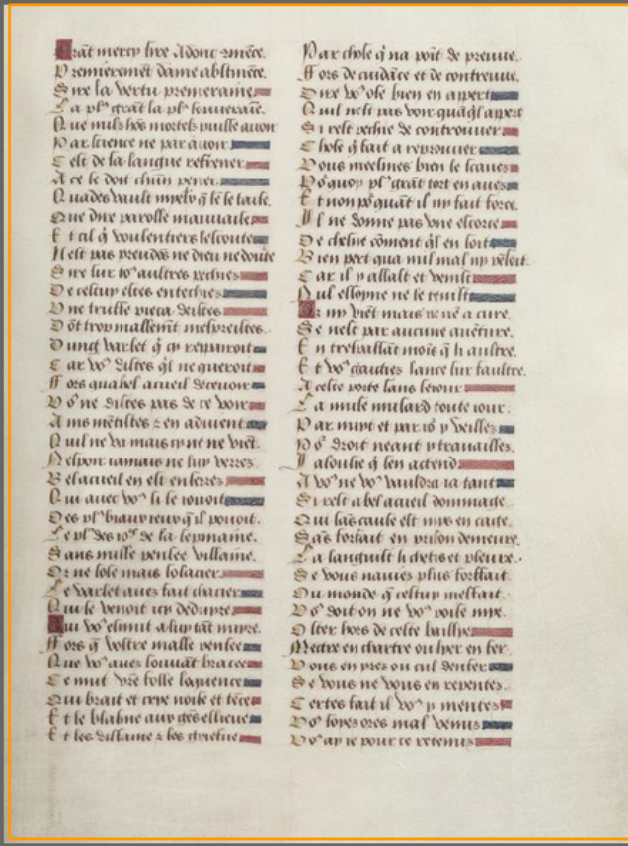 Grãt mercy sire Adonc cõmẽce.
Premieremẽt dame abstinẽce.
Sire la vertu premeraine
La plꝰ grãt la plꝰ souveraĩe.
Que nulz hõs mortelz puisse avoir
Par science ne par avoir
Cest de la langue refrener
A ce se doit chũn pener
Quades vault mieulx q̃ se taise.
Que dire parolle mauvaise
Et cil q̃ voulentiers lescoute
Nest pas preudõs ne dieu ne doute
Sire sur toꝰ aultres pechies
De celluy estes entechies
Une truffe pieca deistes
Dõt trop mallemẽt mespreistes
Dung varlet q̃ cy repairoit
Car voꝰ distes q̃l ne queroit
Fors qua bel acueil decevoir
Voꝰ ne distes pas de ce voir
Ains mẽtistes z en advient
Quil ne va mais cy ne ne viẽt.
Nespoir iamais ne luy verres
Belacueil en est enserres
Qui avec voꝰ si se iouoit
Des plꝰ biaux ieux q̃ il povoit.
Le plꝰ des iorꝰ de la sepmaine.
Sans nulle pensee villaine.
Or ne sose mais solacier
Le varlet aves fait chacier
Qui se venoit icy deduyre
Qui voꝰ esmut a luy tãt nuyre.
Fors q̃ vostre malle pensee
Que voꝰ aves souvãt bracee
Ce mut vr̃e folle loquence
Qui brait et crye noise et tẽce
Et le blasme aux gẽs eslieve
Et les diffame z les griefve
Par chose q̃ na poĩt de preuve.
Fors de cuidãce et de contreuve.
Dire voꝰ ose bien en appert
Quil nest pas voir quãq̃l appert
Si rest pechie de controuver
Chose q̃ fait a reprouver
Vous meesmes bien le scaves
Pꝰquoy plꝰ grãt tort en aves
Et non pꝰquãt il ny fait force.
Il ne donne pas une escorce
De chesne cõment q̃l en soit
Bien pert qua nul mal ny pẽsoit.
Car il y allast et venist
Nul essoyne ne le tenist
Or ny viẽt mais ne nẽ a cure.
Se nest par aucune avẽture.
En trespassãt moĩs q̃ li aultre.
Et voꝰ gaities lance sur faultre.
A ceste porte sans seiour
La muse musard toute iour.
Par nuyt et par ior y veilles
Pꝰ droit neant y travailles.
Ialousie q̃ sen actend
A voꝰ ne voꝰ vauldra ia tant
Si rest a bel acueil dommage.
Qui sãs cause est mys en cage.
Sãs forfait en prison demeure.
La languist li chetis et pleure.
Se vous navies plus forffait.
Du monde q̃ celluy meffait.
Voꝰ doit on ne voꝰ poise mye.
Oster hors de ceste baillye
Mectre en chartre ou lyer en fer.
Vous en yres ou cul denfer
Se vous ne vous en repentes.
Certes fait il voꝰ y mentes
Voꝰ soyes ores mal venus
Voꝰ ay ie pour ce retenus